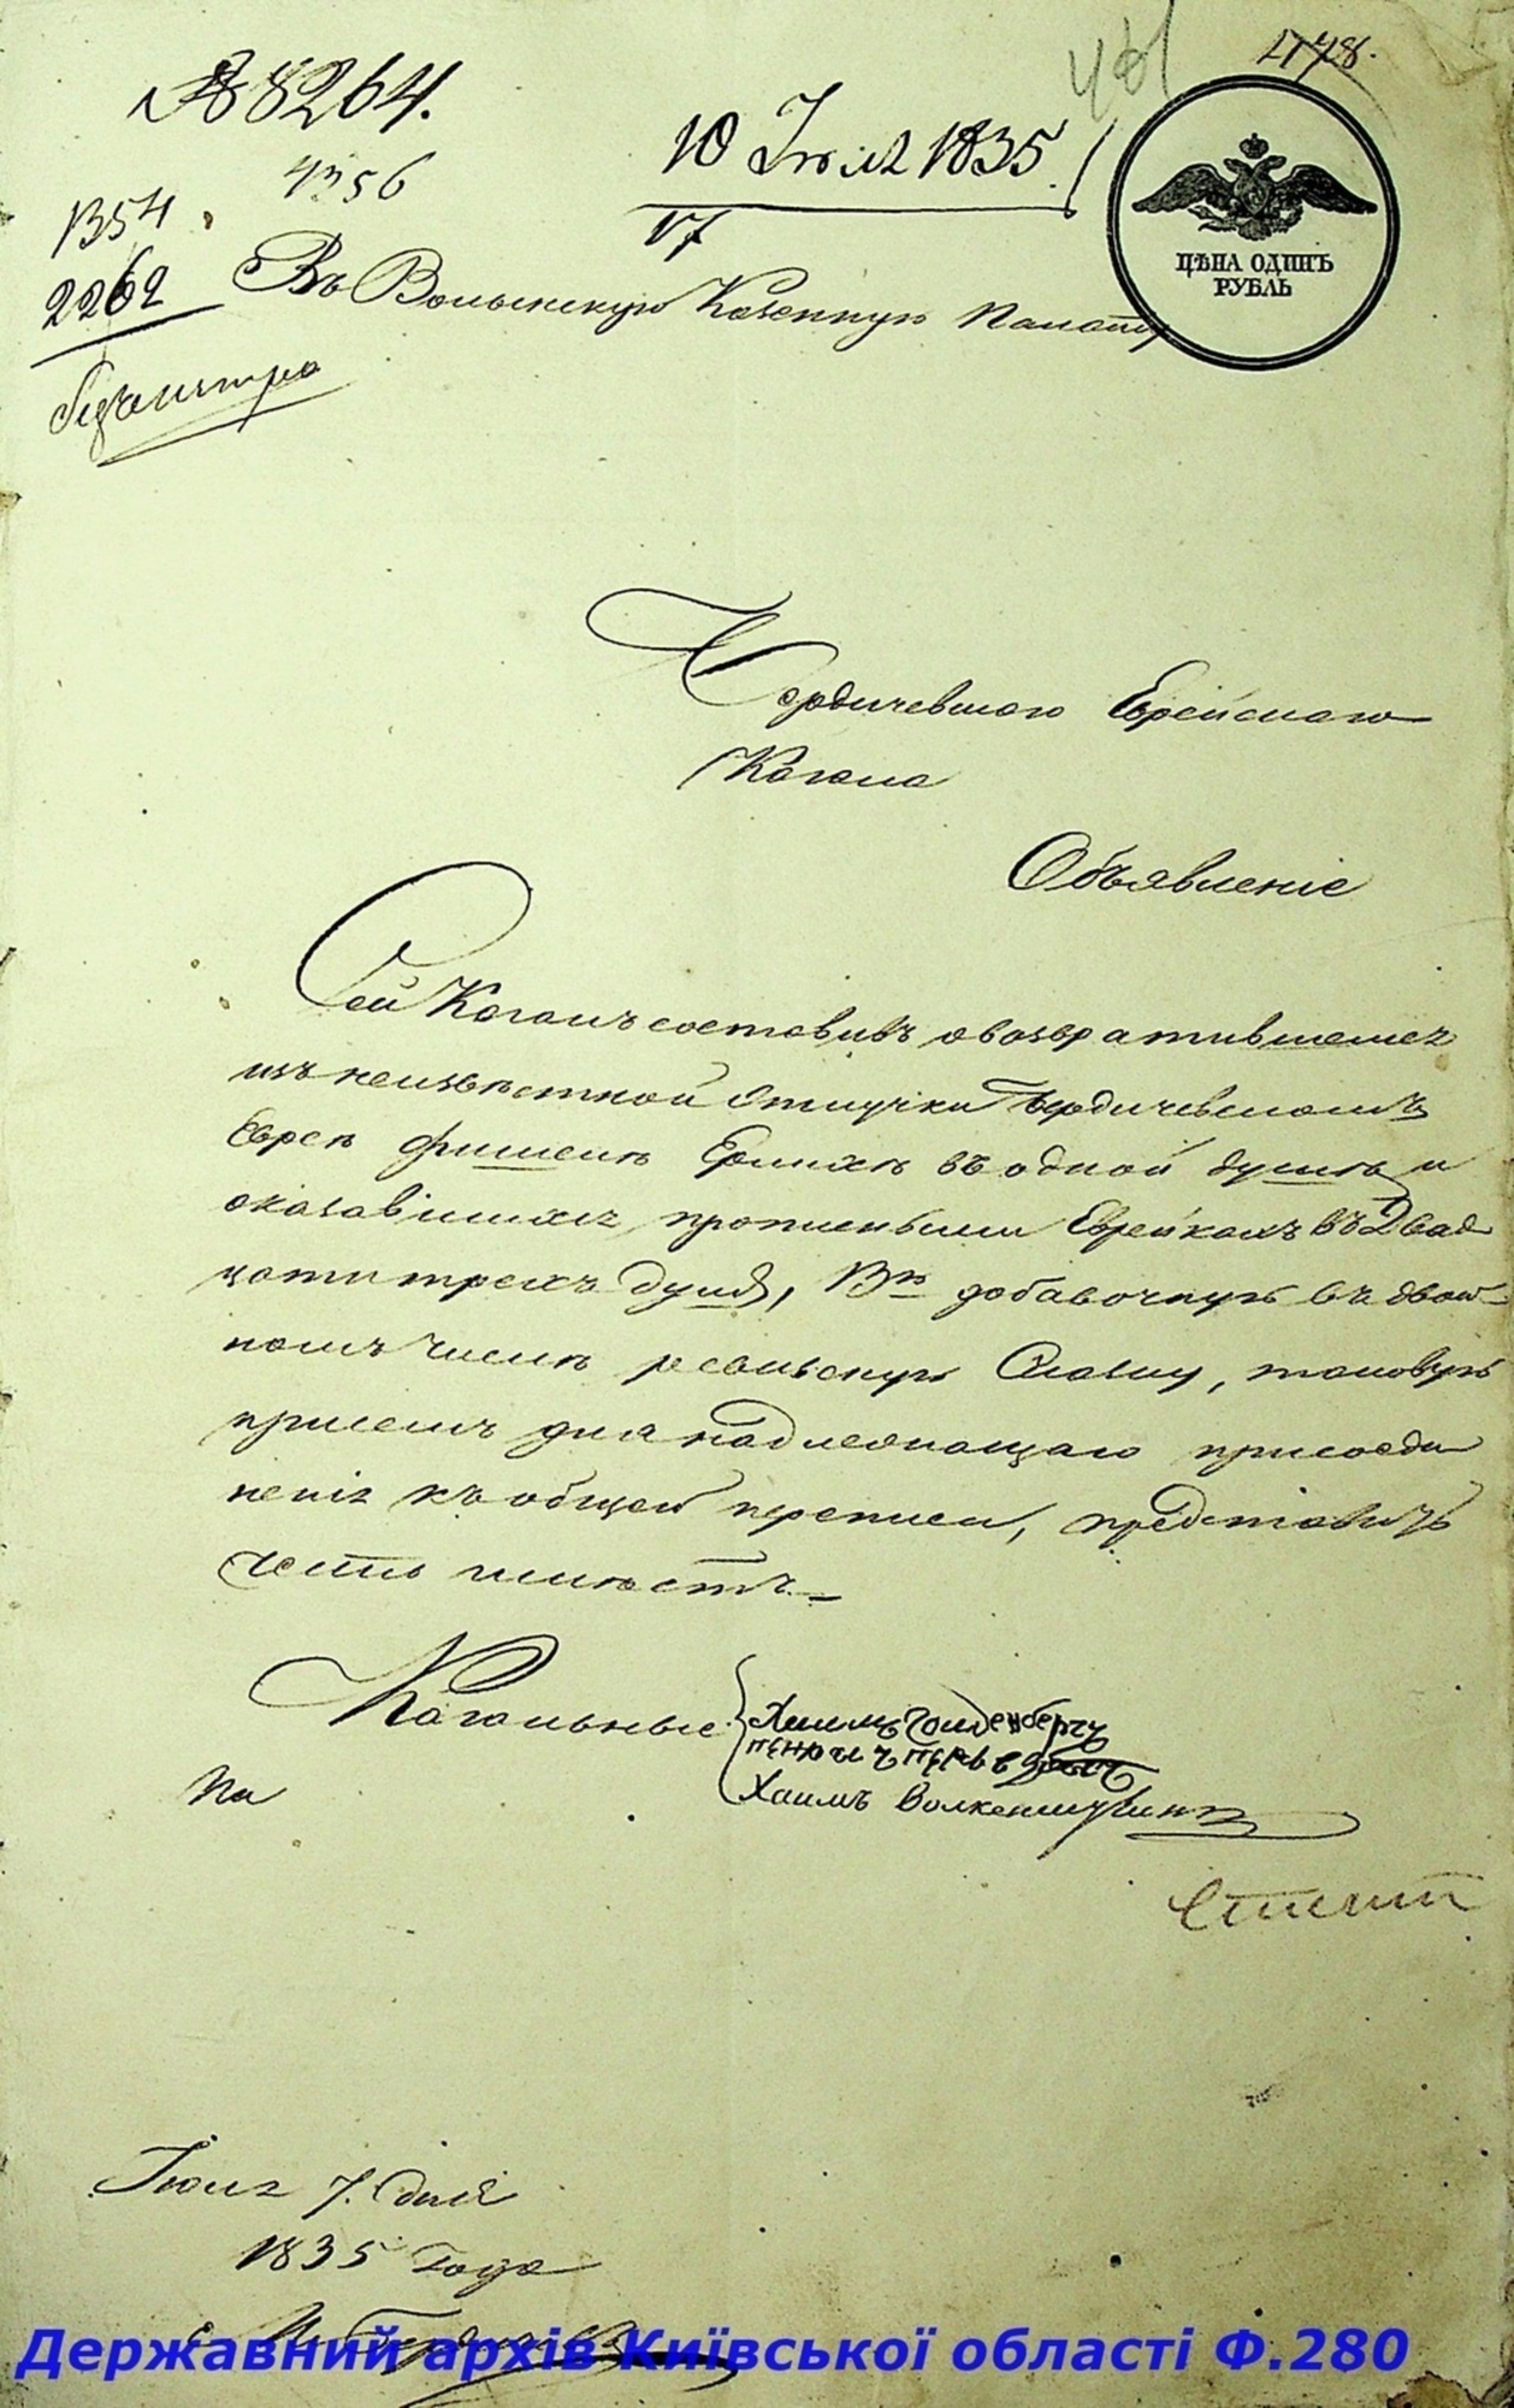 478.
№ 8264.
4356
10 Июля 1835
17
1354
2262
ЦѢНА ОДИНЪ
РУБЛЬ
Въ Волынскую Казенную Палату
Бердичевскаго Еврейскаго
Кагала
Объявленіе
Сей Кагалъ составивъ о возвратившемся
изъ неизвѣстной отлучки Бердичевскомъ
Евреѣ Фишелѣ въ одной душѣ и
оказавшихся прописными Еврейкахъ въ двад
цати трехъ душ, добавочную въ двой
номъ числѣ ревизскую Сказку, таковую
присемъ для надлежащаго присоеди
ненія къ общей переписи, представить
честь имѣетъ.
Кагальные
Хаимъ Голденбергъ
Хаимъ Волкенштейнъ
Іюля 7. дня
1835 Года
Державний архів Київської області Ф.280